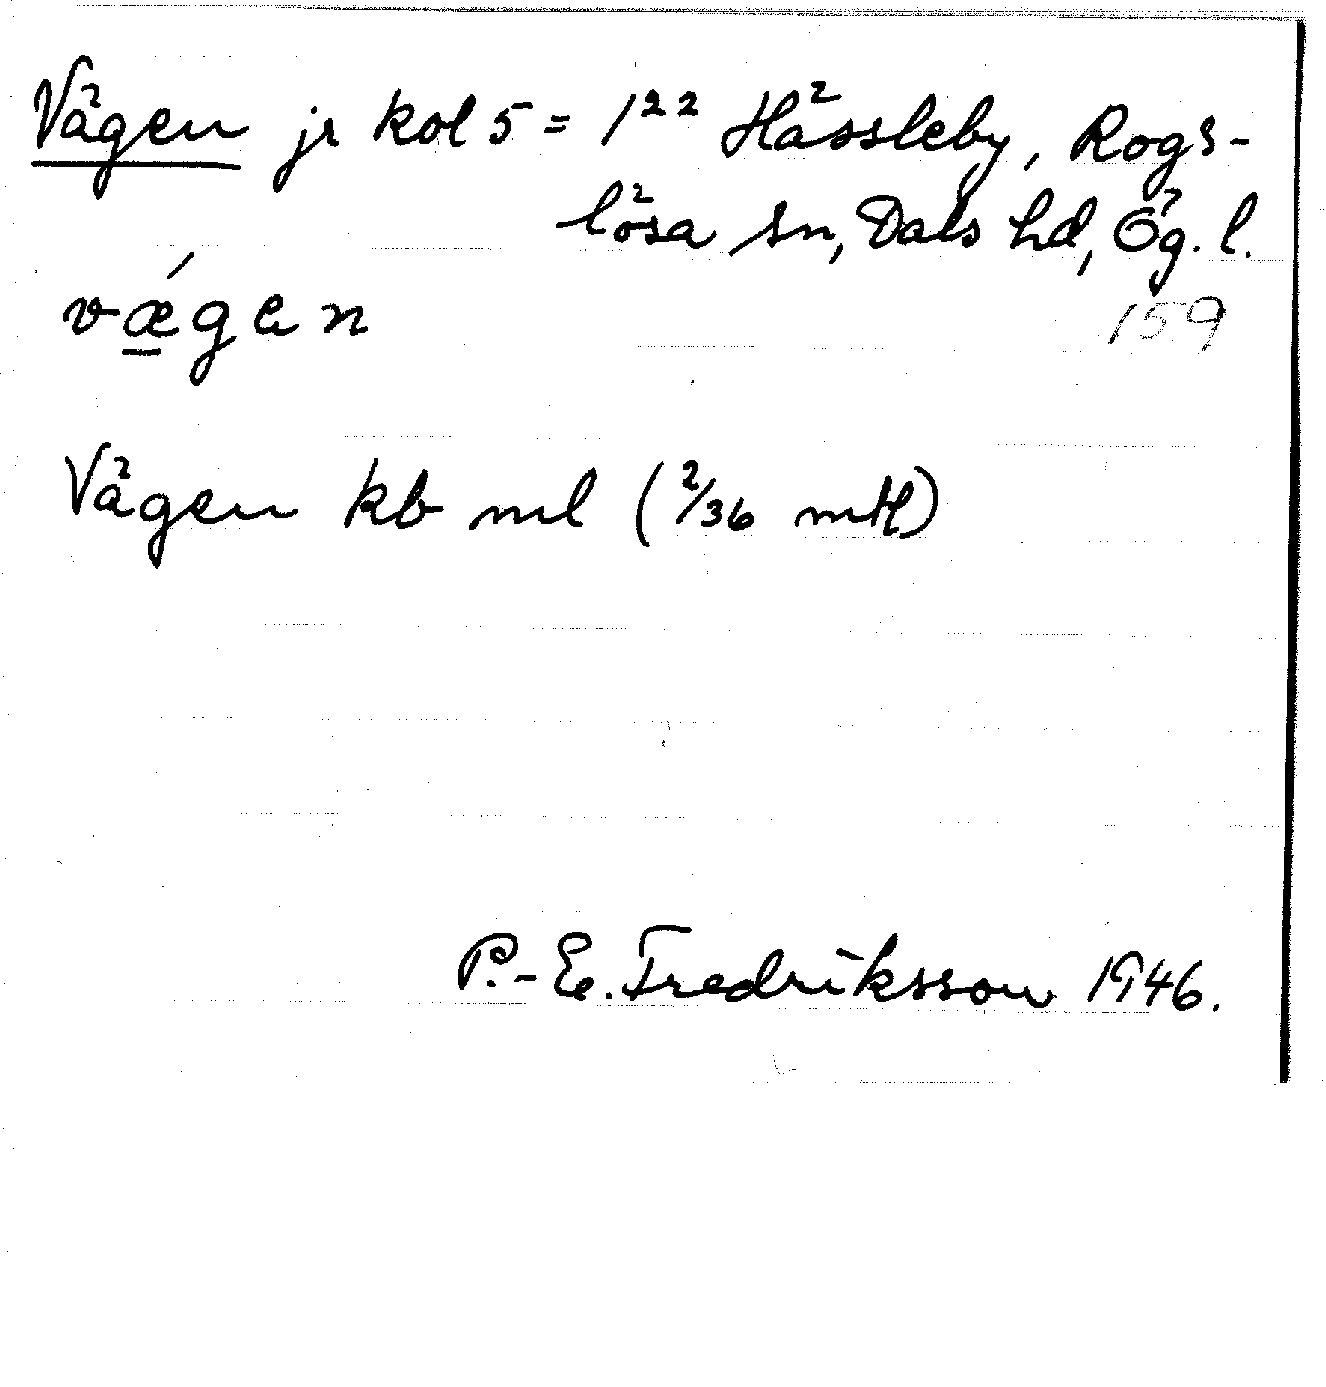 Vägen jr kol 5 = 1²² Hässleby, Rogs-
lösa sn, Dals hd, Ög. l.
vǽgen
159
Vägen kb ml (2/36 mtl)
P.-E. Fredriksson 1946.